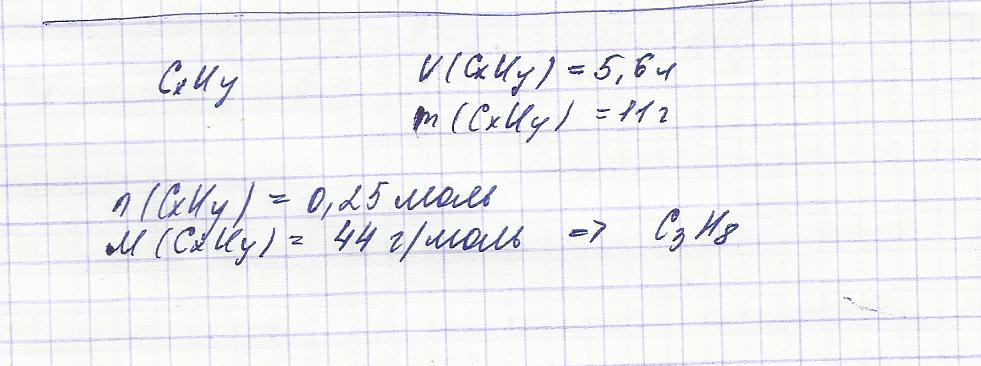 CxHy V(CxHy) = 5,6 л
m(CxHy) = 11 г
n(CxHy) = 0,25 моль
M(CxHy) = 44 г/моль => C3H8